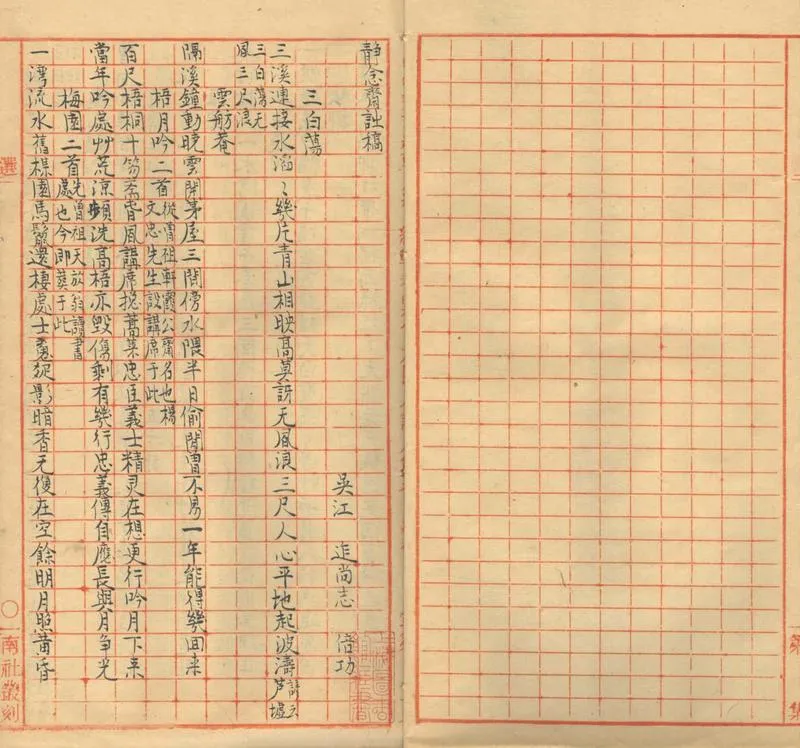 靜念齋詩稿
吳江 迮尚志 倍功
三白蕩
三溪連接水滔〻幾片青山相映高莫訝无風浪三尺人心平地起波濤諺云芦墟
三白蕩无風三尺浪
雲舫菴
隔溪鐘動晚雲開茅屋三間傍水隈半日偷閒曾不易一年能得幾回来
梧月吟二首從曾祖軒霞公齋名也楊文忠先生設講席于此
百尺梧桐十笏齋胥風講席掩蒿莱忠臣義士精灵在想更行吟月下来
當年吟處艸荒涼頻洗高梧亦毀傷剩有幾行忠義傳自應長與月争光
梅園二首先曾祖天放翁讀書處也今即葬于此
一湾流水舊樑園馬鬣還棲處士䰟影暗香无復在空餘明月照黃昏
選
南社叢刻
第 集